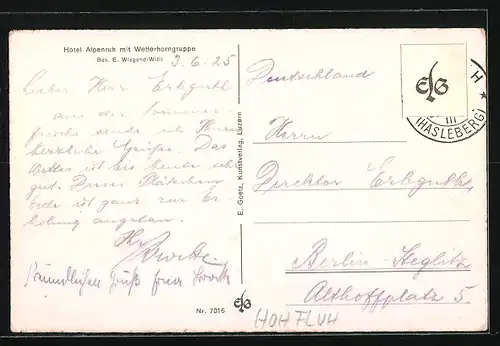 Hotel Alpenruh mit Wetterhorngruppe
Bes. E. Wiegand-Willi
3.6.25
Lieber Herr Erbguth
aus der Sommer-
frische sende ich Ihnen
herzliche Grüße. Das
Wetter ist bis heute sehr
gut. Dieses Plätzchen
Erde ist ganz zur Er-
holung angetan.
Ihr
Gruß Frau
Nr. 7016
E. Goetz, Kunstverlag, Luzern
EG
Deutschland
Herrn
Direktor Erbguth
Berlin-Steglitz
Althoffplatz 5.
EG
H *
III
(HASLEBERG)
HOHFLUH